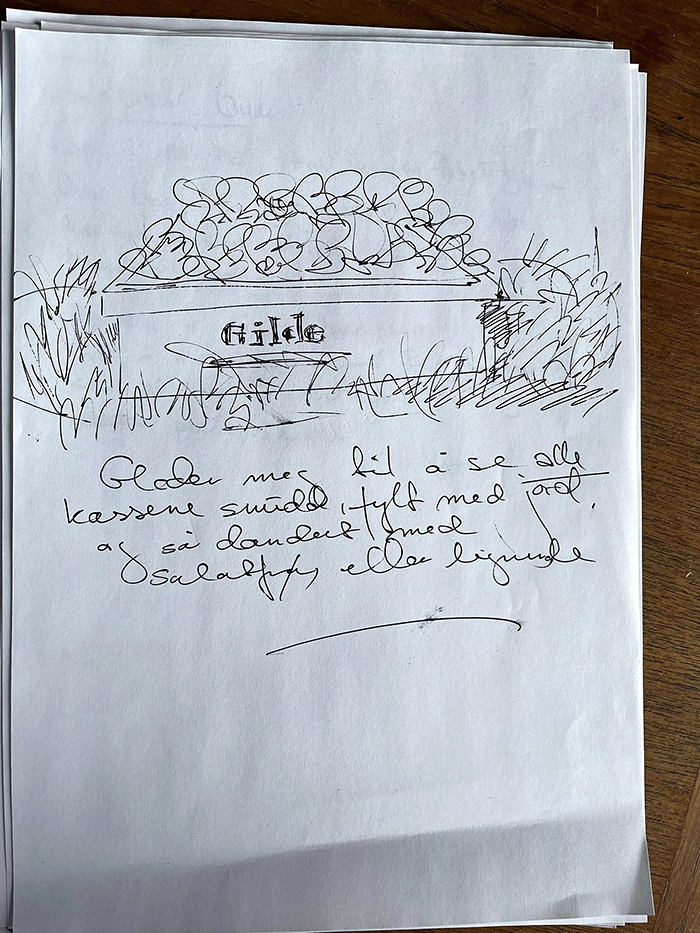 Gilde
Gleder meg til å se alle
kassene snudd, fylt med jord,
og så dandert med
eller lignende